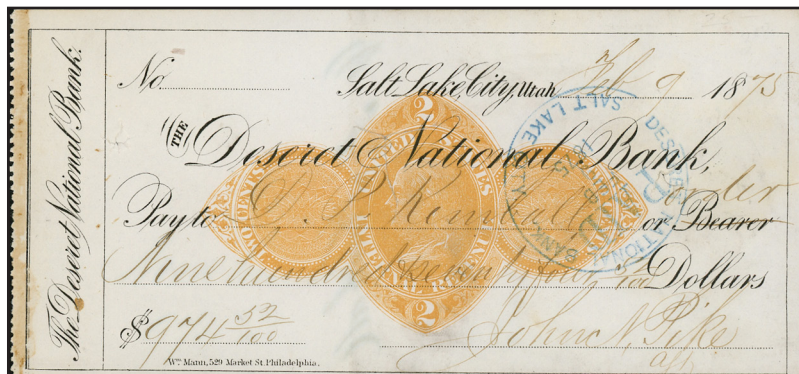 The Deseret National Bank.
No. Salt Lake City, Utah Feb 9 1875
THE Deseret National Bank,
order
Pay to D. P. Kimball or Bearer
Nine hundred seventy four Dollars
$974 32/100 John N. Pike
Wm Mann, 529 Market St. Philadelphia.
2
UNITED STATES
INTERNAL REVENUE
2
TWO CENTS
TWO CENTS
DESERET NATIONAL BANK
SALT LAKE CITY